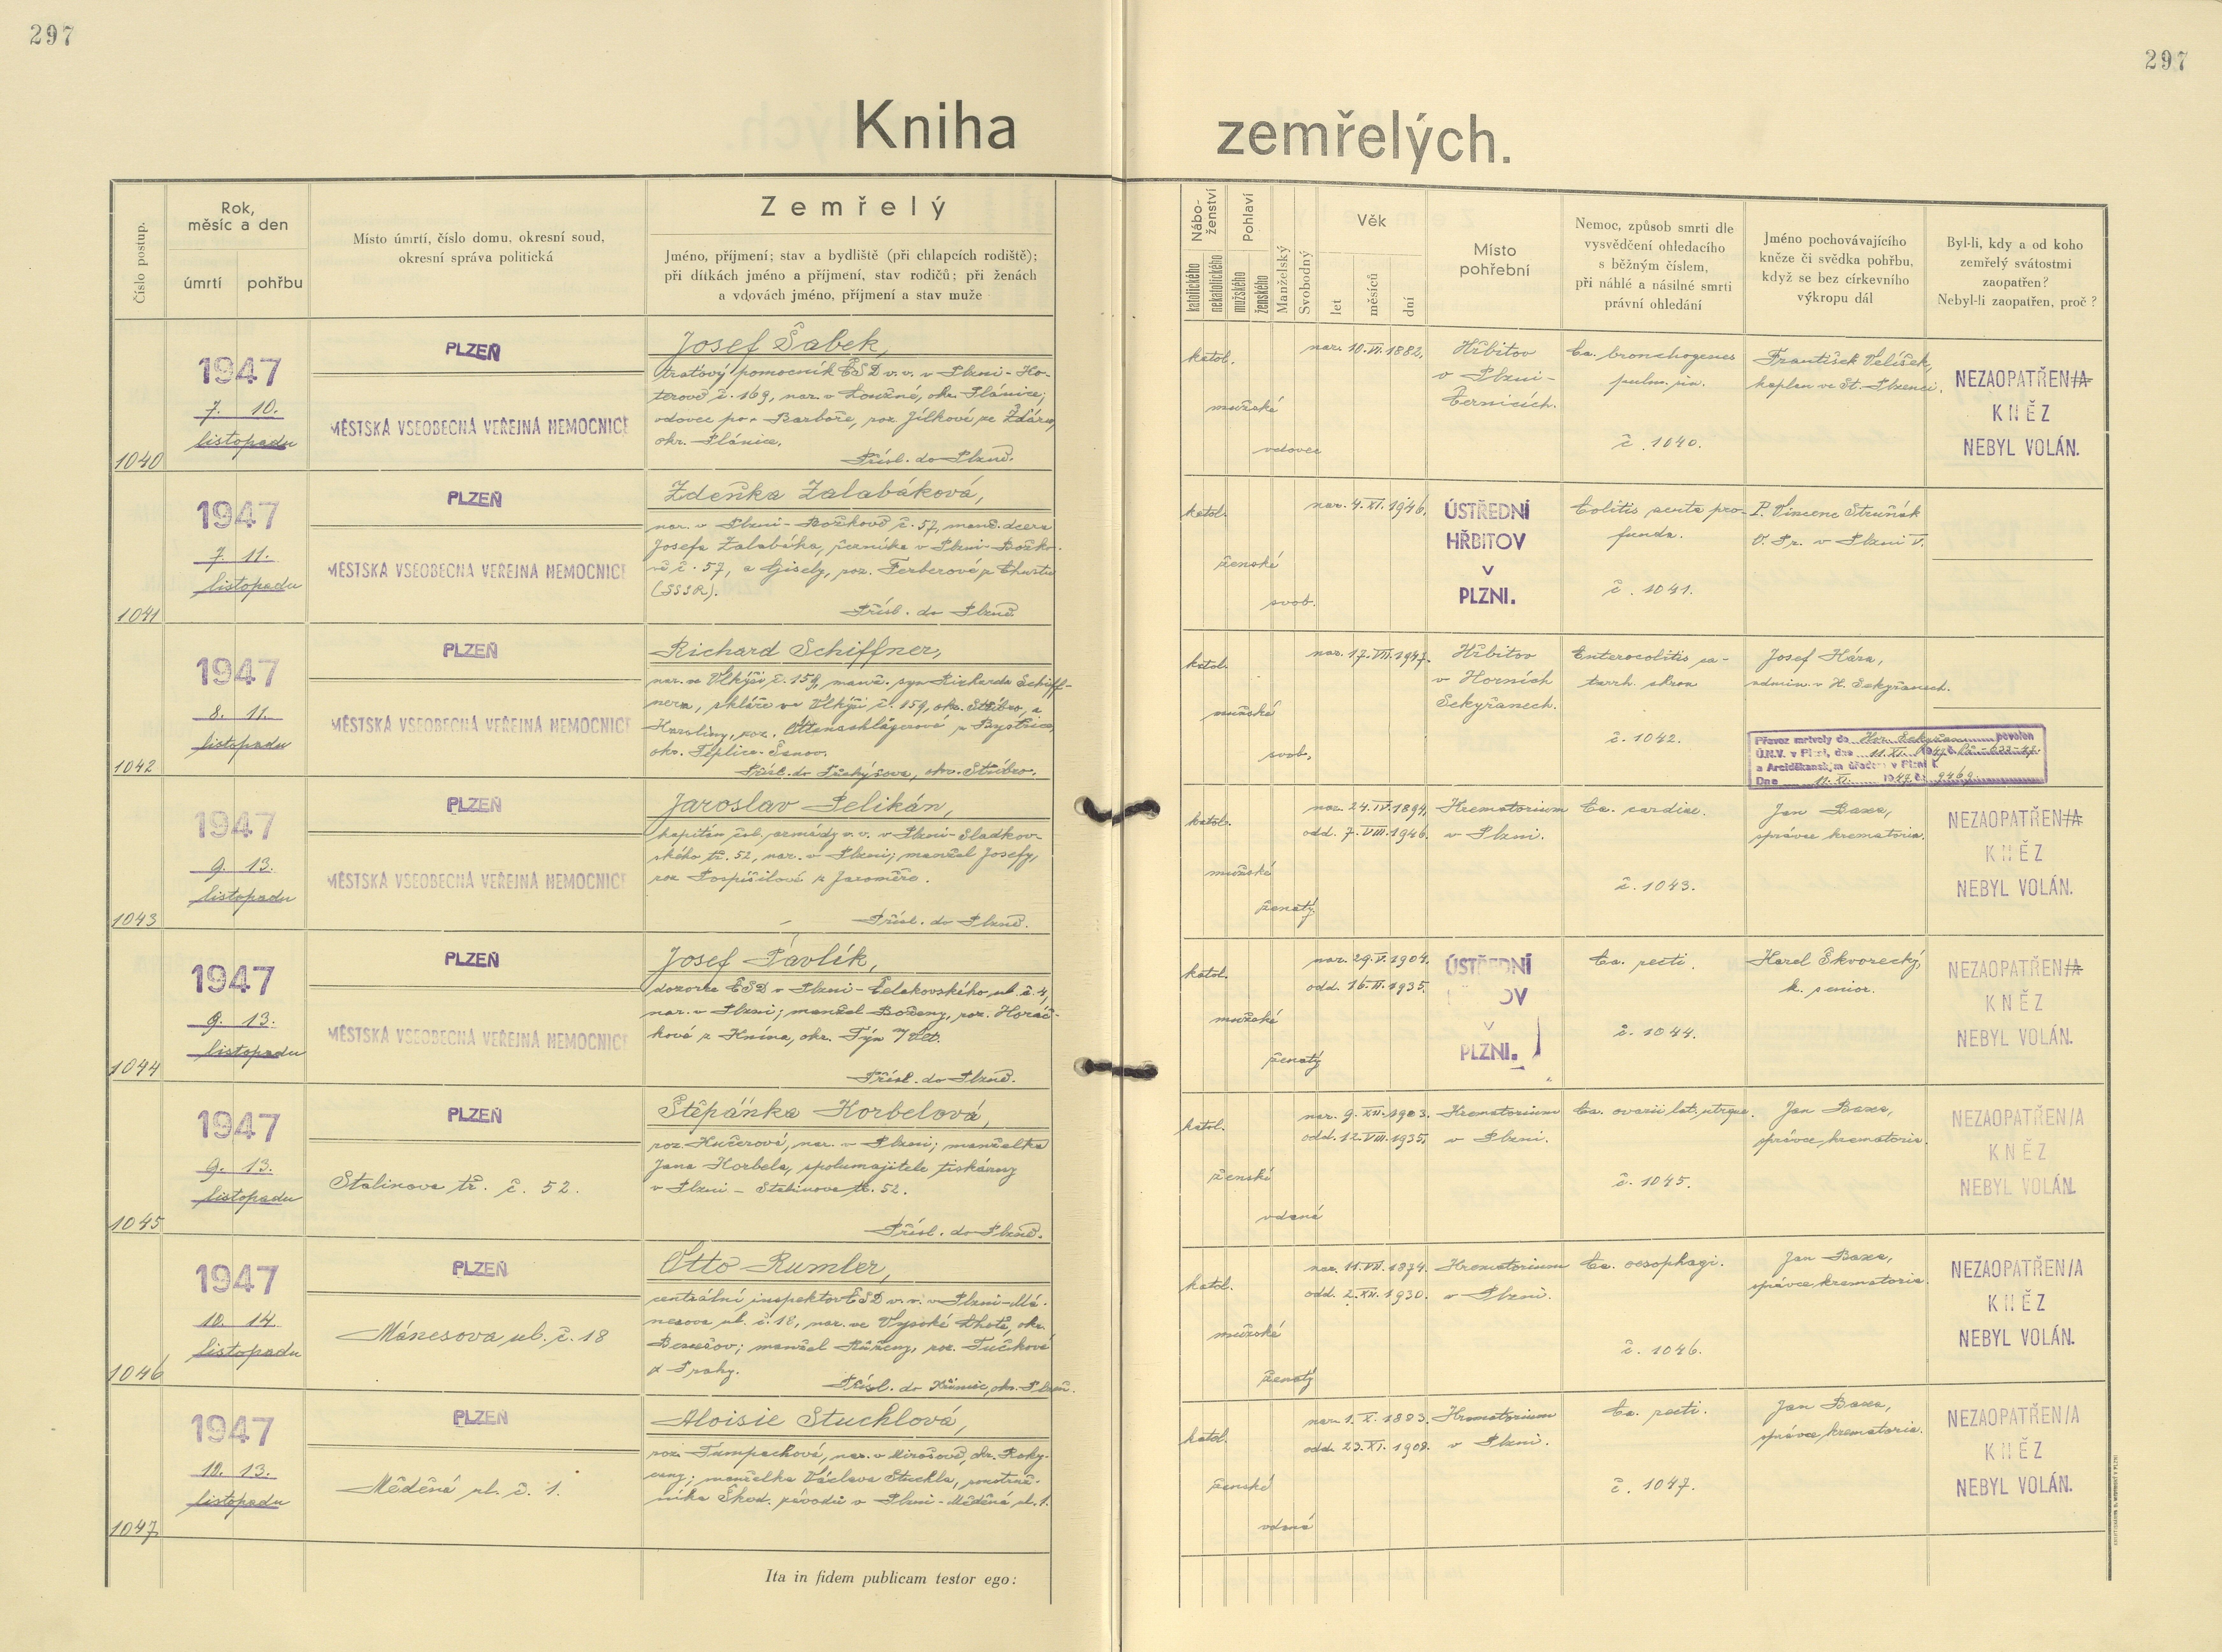 297
297
Kniha zemřelých.
Číslo postup.
Rok,
měsíc a den
úmrtí
pohřbu
Místo úmrtí, číslo domu, okresní soud,
okresní správa politická
Zemřelý
Jméno, příjmení; stav a bydliště (při chlapcích rodiště);
při dítkách jméno a příjmení, stav rodičů; při ženách
a vdovách jméno, příjmení a stav muže
Nábo-
ženství
katolického
nekatolického
Pohlaví
mužského
ženského
Manželský
Svobodný
Věk
let
měsíců
dní
Místo
pohřební
Nemoc, způsob smrti dle
vysvědčení ohledacího
s běžným číslem,
při náhlé a násilné smrti
právní ohledání
Jméno pochovávajícího
kněze či svědka pohřbu,
když se bez církevního
výkropu dál
Byl-li, kdy a od koho
zemřelý svátostmi
zaopatřen?
Nebyl-li zaopatřen, proč?
1040
1947
7. 10.
listopadu
PLZEŇ
MĚSTSKÁ VŠEOBECNÁ VEŘEJNÁ NEMOCNICE
Josef Šabek,
traťový pomocník ČSD v.v. v Plzni-Ho-
terově č. 169, nar. v Loužné, okr. Plánice;
vdovec po Barboře, roz. Jílkové ze Žďáru,
okr. Plánice.
Přísl. do Plzně.
katol.
mužské
vdovec
nar. 10.VI.1882,
Hřbitov
v Plzni-
Černicích.
Ca. bronchogenes
pulm. sin.
č. 1040.
František Velíšek,
kaplan ve St. Plzenci.
NEZAOPATŘEN/A
KNĚZ
NEBYL VOLÁN.
1041
1947
7. 11.
listopadu
PLZEŇ
MĚSTSKÁ VŠEOBECNÁ VEŘEJNÁ NEMOCNICE
Zdeňka Zalabáková,
nar. v Plzni-Božkově č. 57, manž. dcera
Josefa Zalabáka, řezníka v Plzni-Božko-
vě č. 57, a Gisely, roz. Ferberové z Chustu
(SSSR).
Přísl. do Plzně
katol.
ženské
svob.
nar. 4.XI.1946,
ÚSTŘEDNÍ
HŘBITOV
V
PLZNI.
Colitis acuta pro-
funda.
č. 1041.
P. Vincenc Struňák
O. Pr. v Plzni V.
1042
1947
8. 11.
listopadu
PLZEŇ
MĚSTSKÁ VŠEOBECNÁ VEŘEJNÁ NEMOCNICE
Richard Schiffner,
nar. ve Vlkýši č. 159, manž. syn Richarda Schiff-
nera, skláře ve Vlkýši č. 159, okr. Stříbro, a
Karoliny, roz. Ottenschlägerové z Bystřice,
okr. Teplice-Šanov.
okr. Stříbro.
katol.
mužské
svob.
nar. 17.VII.1947.
Hřbitov
v Horních
Sekyřanech.
Enterocolitis ca-
tarrh. chron
č. 1042.
Josef Hára,
admin. v H. Sekyřanech.
Převoz mrtvoly do Hor. Sekyřan povolen
Ú.N.V. v Plzni, dne 11.XI. 1947
a Arciděkanským úřadem v Plzni č.
Dne 11.XI. 1947 č. 9469.
1043
1947
9. 13.
listopadu
PLZEŇ
MĚSTSKÁ VŠEOBECNÁ VEŘEJNÁ NEMOCNICE
Jaroslav Pelikán,
kapitán čsl. armády v.v. v Plzni-Sladkov-
ského tř. 52, nar. v Plzni; manžel Josefy,
roz Pospíšilové z Jaroměře.
Přísl. do Plzně.
katol.
mužské
ženatý
nar. 24.IV.1894,
odd. 7.VIII.1946.
Krematorium
v Plzni.
Ca. cardiae.
č. 1043.
Jan Baxa,
správce krematoria.
NEZAOPATŘEN/A
KNĚZ
NEBYL VOLÁN.
1044
1947
9. 13.
listopadu
PLZEŇ
MĚSTSKÁ VŠEOBECNÁ VEŘEJNÁ NEMOCNICE
Josef Pavlík,
dozorce ČSD v Plzni-Čelakovského ul. č. 4,
nar. v Plzni; manžel Boženy, roz. Horáč-
kové z Knína, okr. Týn n/Vlt.
Přísl. do Plzně.
katol.
mužské
ženatý
nar. 29.V.1904.
odd. 16.II.1935.
ÚSTŘEDNÍ
OV
V
PLZNI.
Ca. recti.
č. 1044.
Karel Škvorecký,
k. senior.
NEZAOPATŘEN/A
KNĚZ
NEBYL VOLÁN.
1045
1947
9. 13.
listopadu
PLZEŇ
Stalinova tř. č. 52.
Štěpánka Korbelová,
roz. Kučerová, nar. v Plzni; manželka
Jana Korbela, spolumajitele tiskárny
v Plzni - Stalinova tř. 52.
Přísl. do Plzně.
katol.
ženské
vdaná
nar. 9.XII.1903.
odd. 12.VIII.1935,
Krematorium
v Plzni.
Ca. ovarii lat. utrque.
č. 1045.
Jan Baxa,
správce krematoria.
NEZAOPATŘEN/A
KNĚZ
NEBYL VOLÁN.
1046
1947
10. 14.
listopadu
PLZEŇ
Mánesova ul. č. 18
Otto Rumler,
centrální inspektor ČSD v.v. v Plzni-Má-
nesova ul. č. 18, nar. ve Vysoké Lhotě, okr.
Benešov; manžel Růženy, roz. Tučkové
z Prahy.
Přísl. do Křimic, okr. Plzeň.
katol.
mužské
ženatý
nar. 11.VII.1874.
odd. 2.XII.1930.
Krematorium
v Plzni.
Ca. oesophagi.
č. 1046.
Jan Baxa,
správce krematoria.
NEZAOPATŘEN/A
KNĚZ
NEBYL VOLÁN.
1047
1947
10. 13.
listopadu
PLZEŇ
Měděná ul. č. 1.
Aloisie Stuchlová,
roz. Tampachová, nar. v Mirošově, okr. Roky-
cany; manželka Václava Stuchla, soustruž-
níka Škod. závodů v Plzni-Měděná ul. 1.
katol.
ženské
vdaná
nar. 1.X.1883.
odd. 23.XI.1908.
Krematorium
v Plzni.
Ca. recti.
č. 1047.
Jan Baxa,
správce krematoria.
NEZAOPATŘEN/A
KNĚZ
NEBYL VOLÁN.
Ita in fidem publicam testor ego: